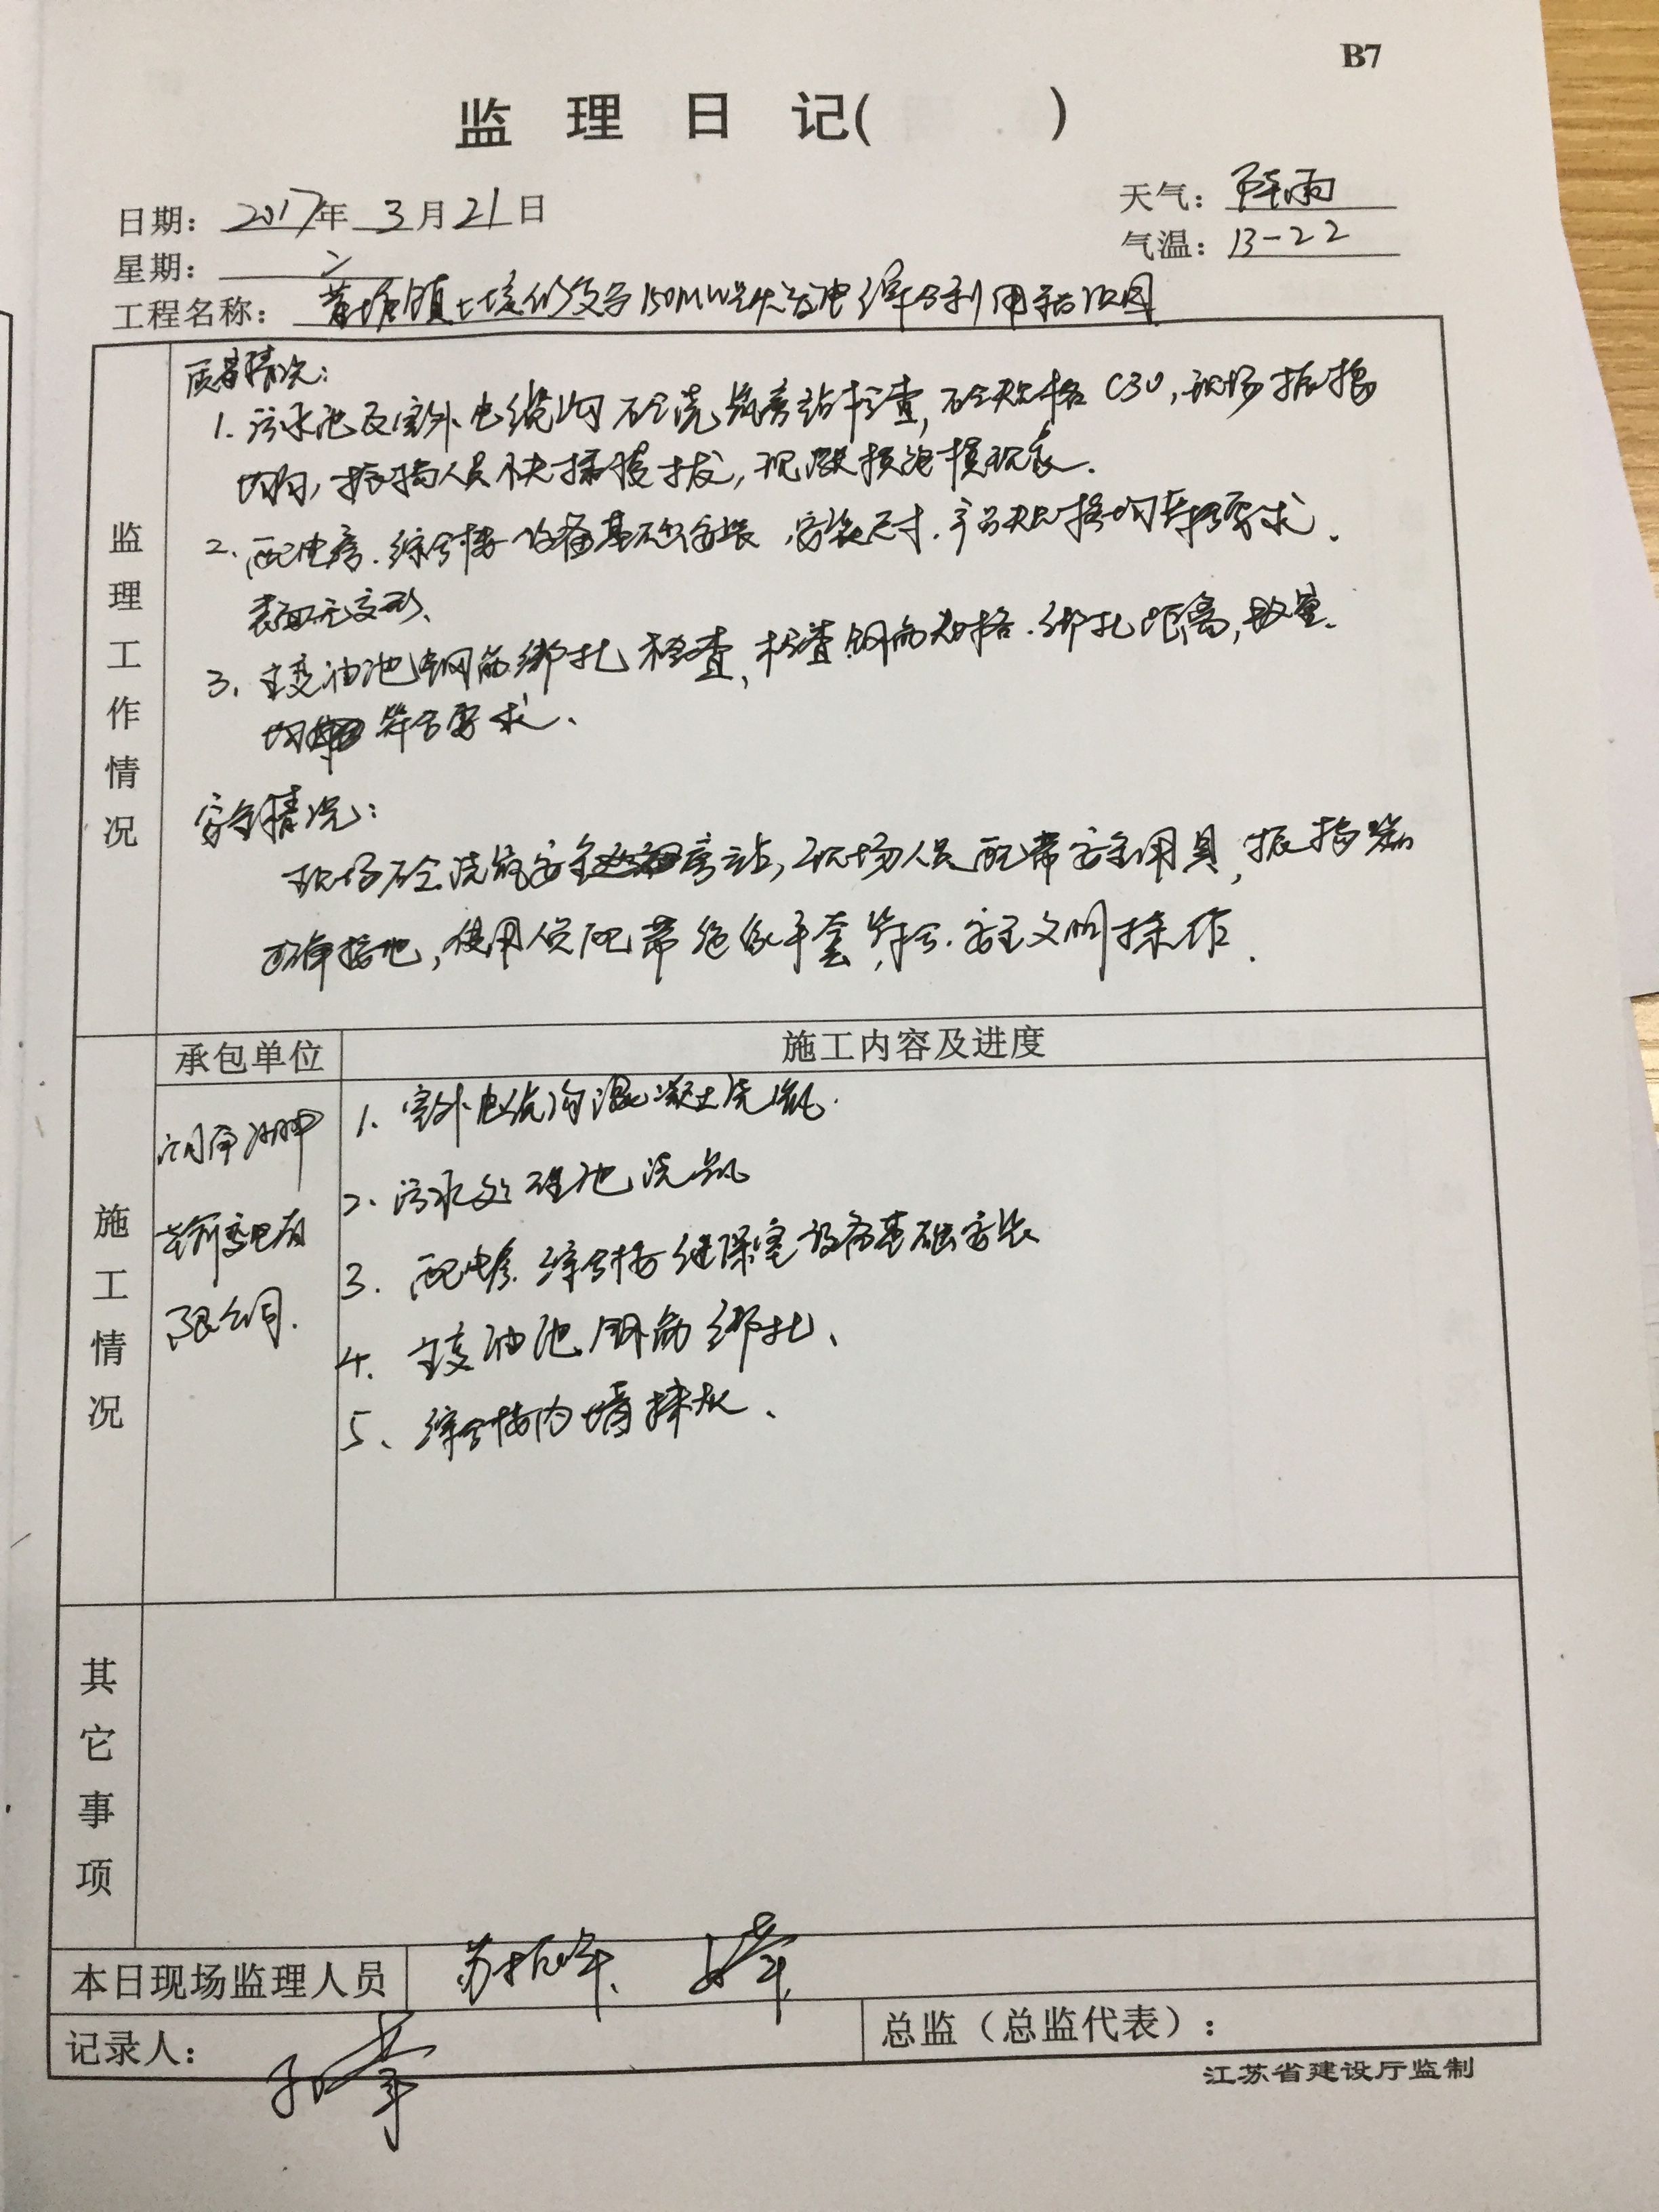 B7
监 理 日 记( )
日期: 2017年 3月21日
天气: 阵雨
星期: 二
气温: 13-22
工程名称: 黄塘镇 150MW 发电综合利用
质量情况:
1. 污水池及室外电缆沟砼浇筑旁站检查, 砼规格C30, 现场振捣
均匀, 振捣人员快插慢拔,
2. 配电房. 综合楼设备基础安装, 安装尺寸. 产品规格均符合要求.
表面无变形.
3. 主变油池钢筋绑扎检查, 检查钢筋规格. 绑扎距离, 数量.
均符合要求.
监理工作情况
安全情况:
现场砼浇筑安全旁站, 现场人员配带安全用具, 振捣器
接地, 使用人员配带绝缘手套, 符合. 安全文明操作.
承包单位
施工内容及进度
1. 室外电缆沟混凝土浇筑.
2. 污水处理池浇筑
3. 配电房. 综合楼继保室设备基础安装
4. 主变油池钢筋绑扎.
5. 综合楼内墙抹灰.
变电有
限公司.
施工情况
其它事项
本日现场监理人员
记录人:
总监（总监代表）:
江苏省建设厅监制